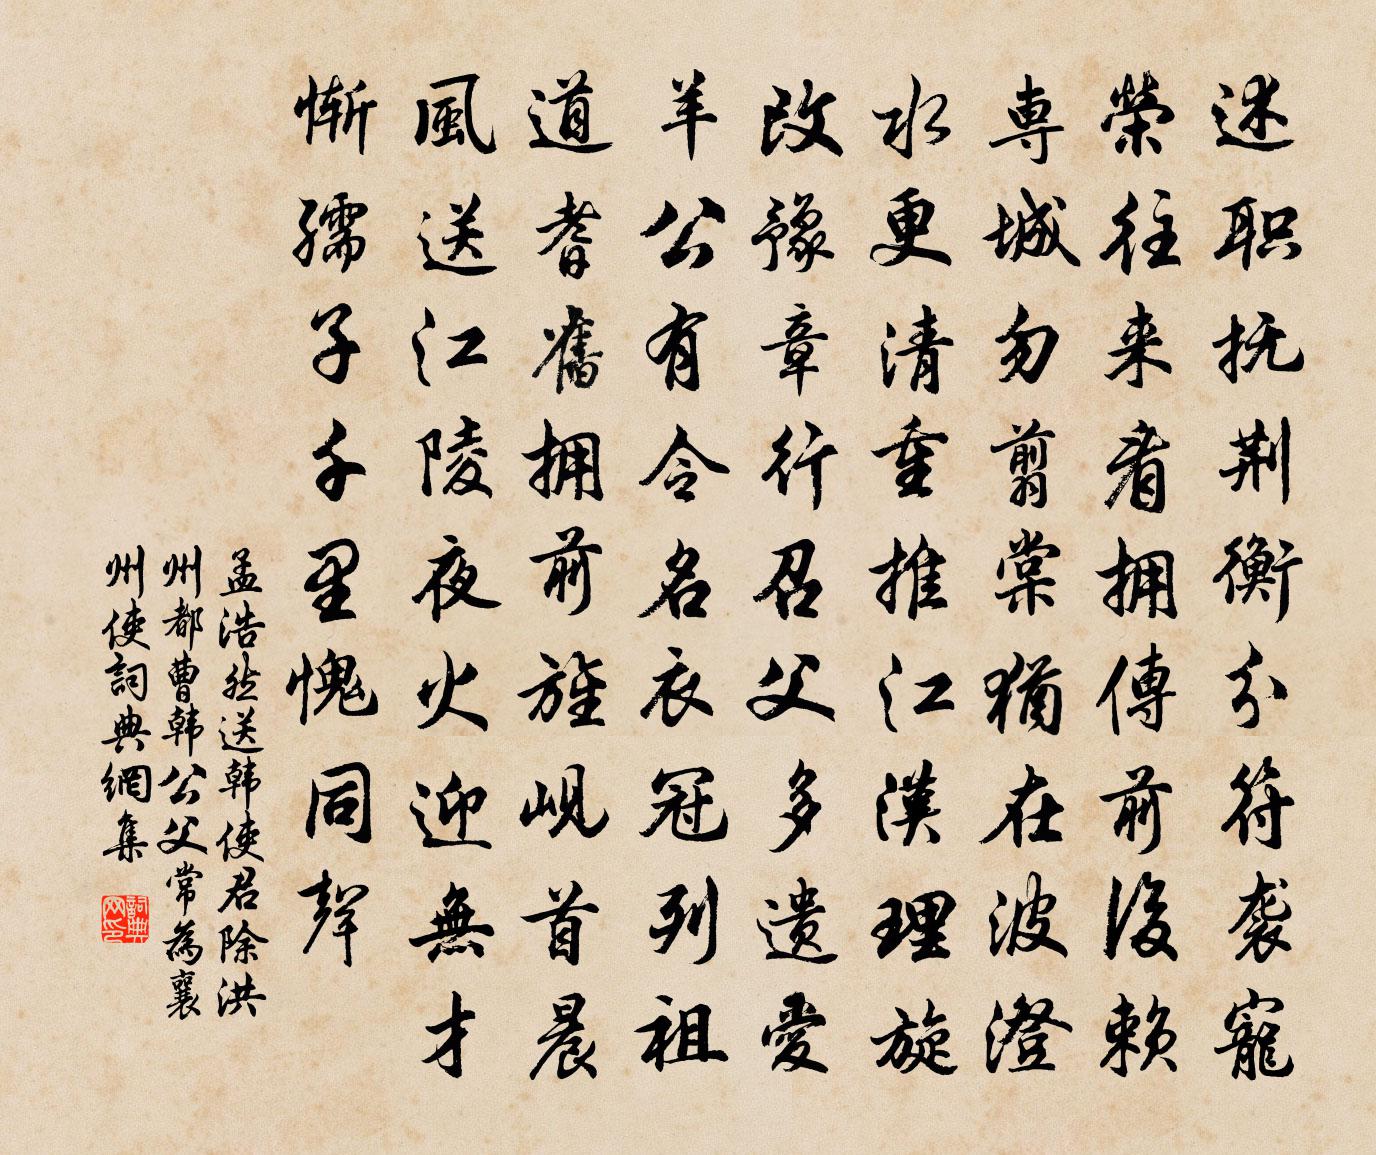 述职抚荆衡分符袭寵
榮往来看拥傳前後赖
専城勿翦棠犹在波澄
水更清重推江漢理旋
改豫章行召父多遗愛
羊公有令名衣冠列祖
道耆舊拥前旌岘首晨
風送江陵夜火迎無才
惭孺子千里愧同聲
孟浩然送韩使君除洪
州都曹韩公父常為襄
州使詞典網集
詞典网印